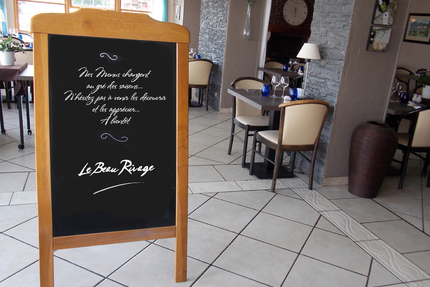 Nos Menus changent
au gré des saisons...
N'hésitez pas à venir les découvrir
et les apprécier...
A bientôt
Le Beau Rivage